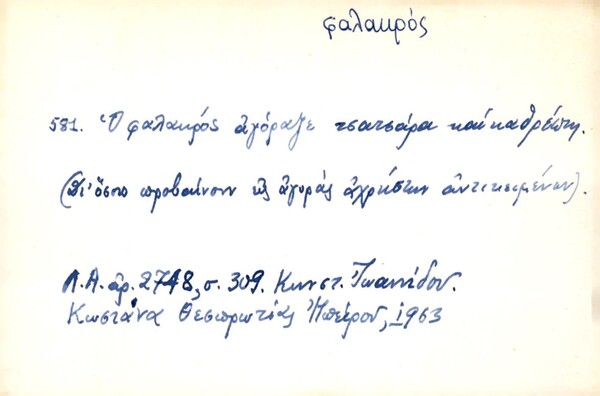 φαλακρός
581. Ὁ φαλακρός ἀγόραζε τσατσάρα καί καθρέφτη.
(Δι' ὅσους προβαίνουν εἰς ἀγοράς ἀχρήστων ἀντικειμένων).
Λ.Α. ἀρ. 2748, σ. 309. Κωνστ. Ἰωαννίδου.
Κωστάνα Θεσπρωτίας Ἠπείρου, 1963